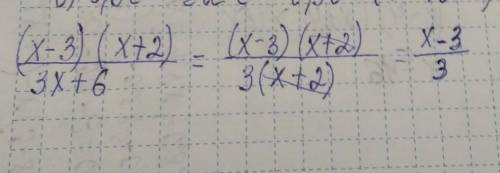 (x-3)(x+2)/3x+6 = (x-3)(x+2)/3(x+2) = x-3/3